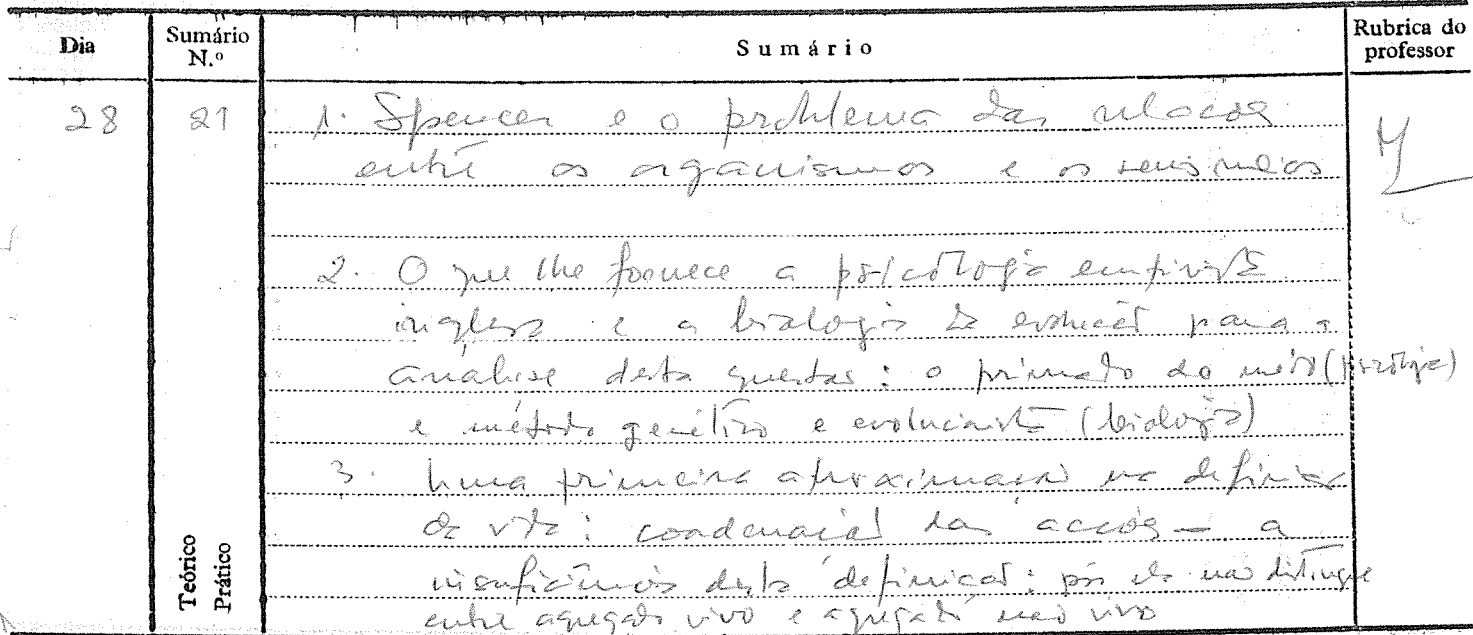 Dia
Sumário N.º
Sumário
Rubrica do professor
28
21
1. Spencer e o problema das relações
entre os organismos e os seus meios
2. O que lhe fornece a psicologia empirista
inglesa e a biologia da evolução para a
análise desta questão: o primado do meio (psicologia)
e método genético e evolucionista (biologia)
3. Uma primeira aproximação na definição
da vida: coordenação das acções – a
insuficiência desta definição: pois ela não distingue
entre agregado vivo e agregado não vivo
Teórico
Prático